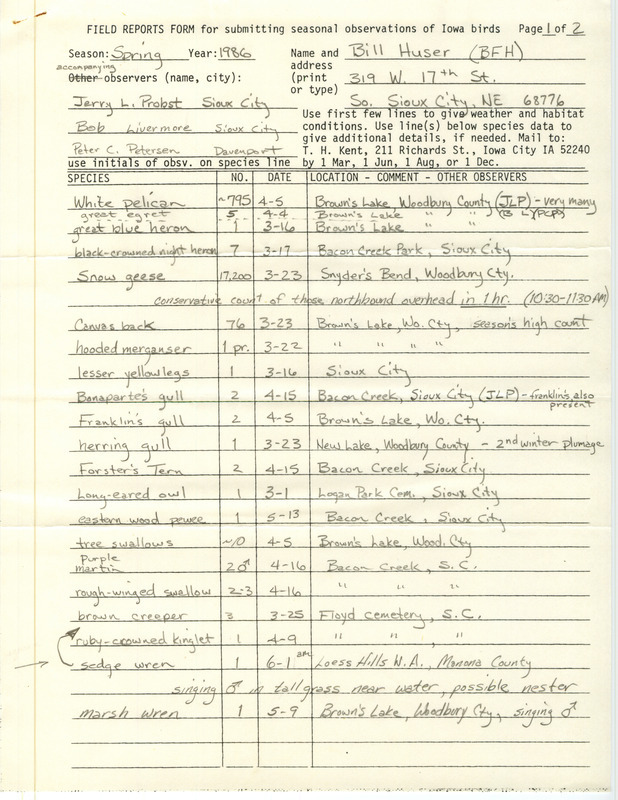 FIELD REPORTS FORM for submitting seasonal observations of Iowa birds Page 1 of 2
Season: Spring Year: 1986 Name and Bill Huser (BFH)
accompanying address
Other observers (name, city): (print 319 W. 17th St.
or type)
Jerry L. Probst Sioux City So. Sioux City, NE 68776
Bob Livermore Sioux City
Peter C. Petersen Davenport
use initials of obsv. on species line
Use first few lines to give weather and habitat
conditions. Use line(s) below species data to
give additional details, if needed. Mail to:
T. H. Kent, 211 Richards St., Iowa City IA 52240
by 1 Mar, 1 Jun, 1 Aug, or 1 Dec.
SPECIES NO. DATE LOCATION - COMMENT - OTHER OBSERVERS
White pelican ~795 4-5 Brown's Lake, Woodbury County (JLP) - very many
great egret 5 4-4 Brown's Lake " " (B L) (PCP)
great blue heron 1 3-16 Brown's Lake " "
black-crowned night heron 7 3-17 Bacon Creek Park, Sioux City
Snow geese 17,200 3-23 Snyder's Bend, Woodbury Cty.
conservative count of those northbound overhead in 1 hr. (10:30-11:30 AM)
Canvas back 76 3-23 Brown's Lake, Wo. Cty, season's high count
hooded merganser 1 pr. 3-22 " " " "
lesser yellowlegs 1 3-16 Sioux City
Bonaparte's gull 2 4-15 Bacon Creek, Sioux City (JLP) - franklin's also present
Franklin's gull 2 4-5 Brown's Lake, Wo. Cty.
herring gull 1 3-23 New Lake, Woodbury County - 2nd winter plumage
Forster's Tern 2 4-15 Bacon Creek, Sioux City
Long-eared owl 1 3-1 Logan Park Cem., Sioux City
eastern wood pewee 1 5-13 Bacon Creek, Sioux City
tree swallows ~10 4-5 Brown's Lake, Wood. Cty
purple martin 2♂ 4-16 Bacon Creek, S.C.
rough-winged swallow 2-3 4-16 " " "
brown creeper 3 3-25 Floyd cemetery, S.C.
ruby-crowned kinglet 1 4-9 " " , "
sedge wren 1 6-1 am Loess Hills W.A., Monona County
singing ♂ in tall grass near water, possible nester
marsh wren 1 5-9 Brown's Lake, Woodbury Cty, singing ♂